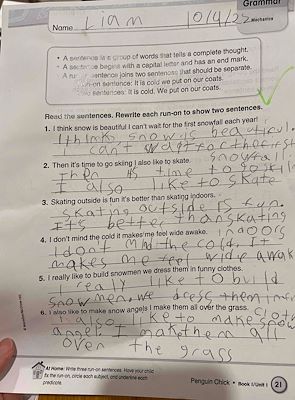 Grammar
Mechanics
Name Liam 10/4/22
• A sentence is a group of words that tells a complete thought.
• A sentence begins with a capital letter and has an end mark.
• A run-on sentence joins two sentences that should be separate.
Run-on sentence: It is cold we put on our coats.
Two sentences: It is cold. We put on our coats.
Read the sentences. Rewrite each run-on to show two sentences.
1. I think snow is beautiful I can't wait for the first snowfall each year!
I think snow is beautiful.
I can't wait for the first
snowfall
2. Then it's time to go skiing I also like to skate.
Then its time to go skiing
I also like to skate
3. Skating outside is fun it's better than skating indoors.
Skating outside is fun.
It's better than skating
indoors
4. I don't mind the cold it makes me feel wide awake.
I dont mind the cold. It
makes me feel wide awak
5. I really like to build snowmen we dress them in funny clothes.
really like to build
snowmen. we dress them in
cloth
6. I also like to make snow angels I make them all over the grass.
also like to make snow
angels I make them all
over the grass
At Home: Write three run-on sentences. Have your child
fix the run-on, circle each subject, and underline each
predicate.
Penguin Chick • Book 1/Unit 1 21